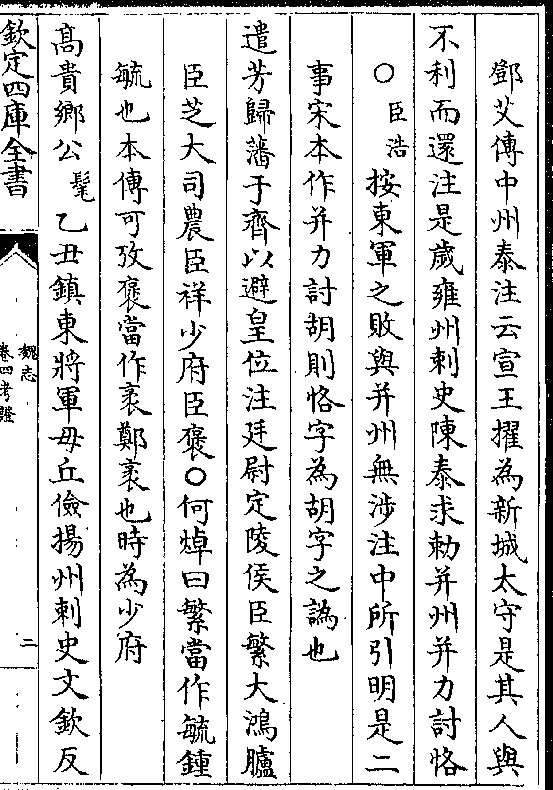 鄧艾傳中州泰注云宣王擢為新城太守是其人與
不利而還注是歲雍州刺史陳泰求勅并州并力討恪
○臣浩按東軍之敗與并州無涉注中所引明是二
事宋本作并力討胡則恪字為胡字之譌也
遣芳歸藩于齊以避皇位注廷尉定陵侯臣繁大鴻臚
臣芝大司農臣祥少府臣褒○何焯曰繁當作毓鍾
毓也本傳可攷褒當作袤鄭袤也時為少府
高貴鄉公髦乙丑鎮東將軍毋丘儉揚州刺史文欽反
欽定四庫全書
魏志
卷四考證
二